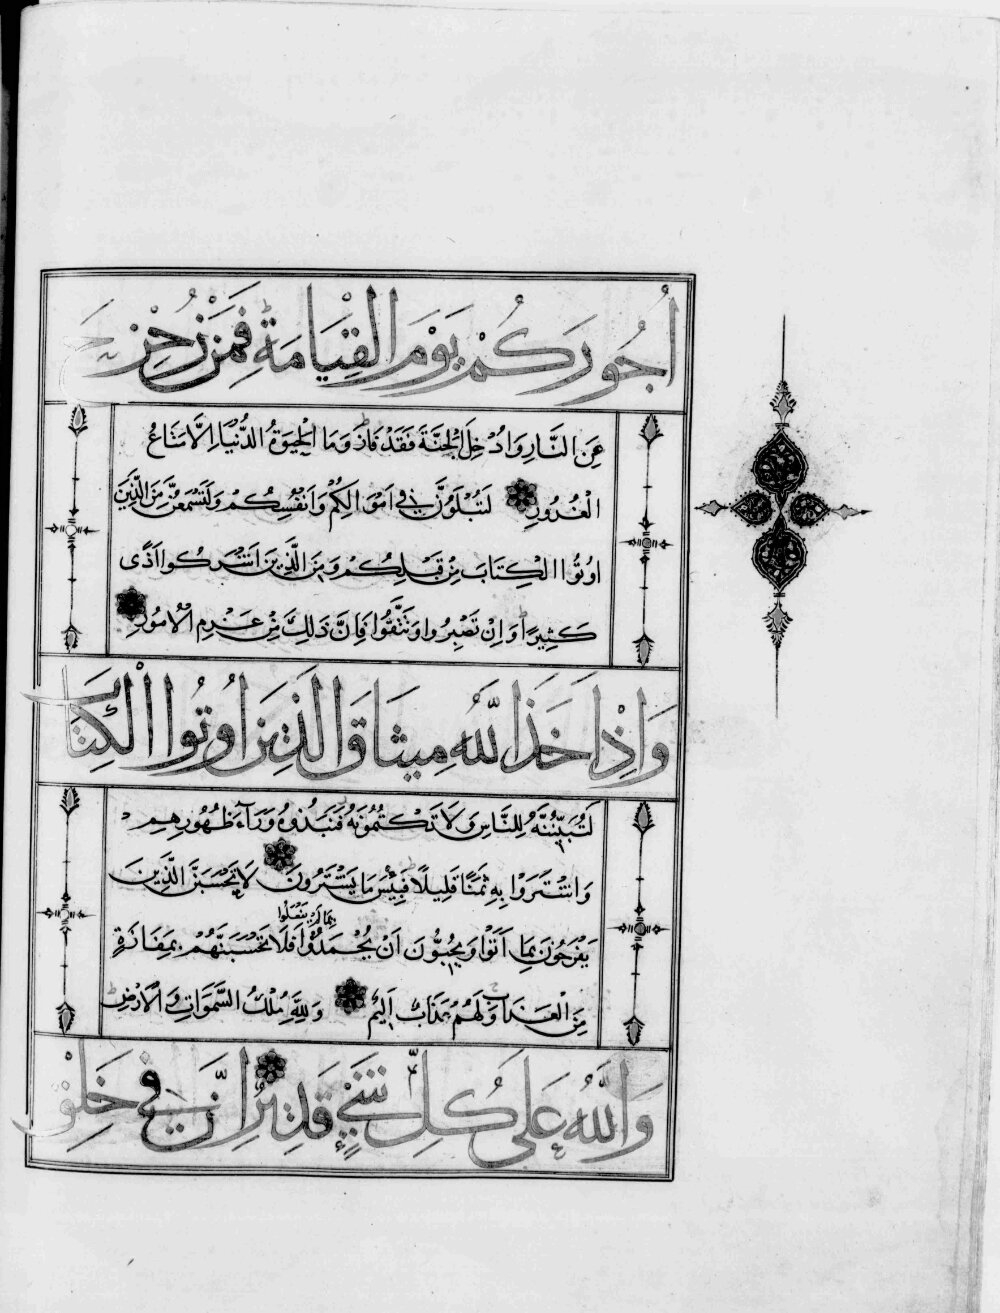 أُجُورَكُمْ يَوْمَ القِيَامَةِ فَمَنْ زُحْزِحَ
عَنِ النَّارِ وَاُدْخِلَ الْجَنَّةَ فَقَدْ فَازَ وَمَا الْحَيٰوةُ الدُّنْيَا اِلَّا مَتَاعُ
الْغُرُورِ لَتُبْلَوُنَّ فِي اَمْوَالِكُمْ وَاَنْفُسِكُمْ وَلَتَسْمَعُنَّ مِنَ الَّذِينَ
اُوتُوا الْكِتَابَ مِنْ قَبْلِكُمْ وَمِنَ الَّذِينَ اَشْرَكُوا اَذًى
كَثِيرًا وَاِنْ تَصْبِرُوا وَتَتَّقُوا فَاِنَّ ذَلِكَ مِنْ عَزْمِ الْاُمُورِ
وَاِذْ اَخَذَ اللّٰهُ مِيثَاقَ الَّذِينَ اُوتُوا الْكِتَابَ
لَتُبَيِّنُنَّهُ لِلنَّاسِ وَلَا تَكْتُمُونَهُ فَنَبَذُوهُ وَرَآءَ ظُهُورِهِمْ
وَاشْتَرَوْا بِهِ ثَمَنًا قَلِيلًا فَبِئْسَ مَا يَشْتَرُونَ لَا تَحْسَبَنَّ الَّذِينَ
يَفْرَحُونَ بِمَا اَتَوْا وَيُحِبُّونَ اَنْ يُحْمَدُوا بِمَا لَمْ يَفْعَلُوا فَلَا تَحْسَبَنَّهُمْ بِمَفَازَةٍ
مِنَ الْعَذَابِ وَلَهُمْ عَذَابٌ اَلِيمٌ وَلِلّٰهِ مُلْكُ السَّمَوَاتِ وَالْاَرْضِ
وَاللّٰهُ عَلَى كُلِّ شَيْءٍ قَدِيرٌ اِنَّ فِي خَلْقِ